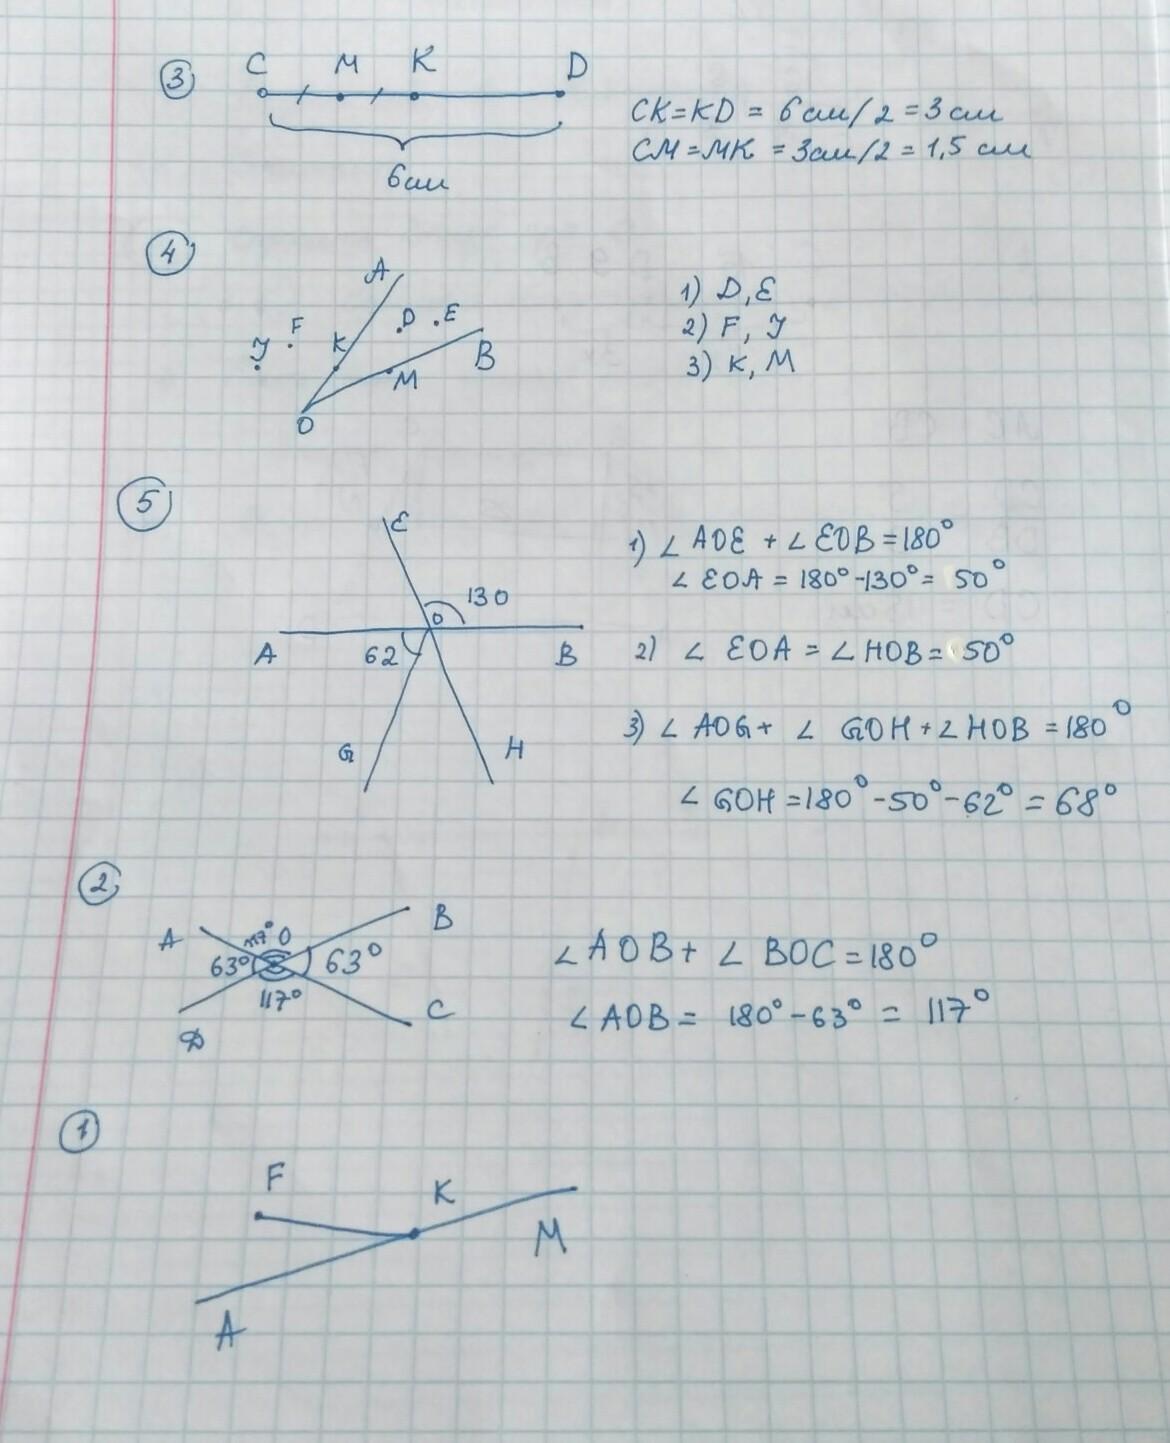 3
C M K D
CK=KD = 6 см/2 = 3 см
CM=MK = 3см/2 = 1,5 см
6см
4
A
F D E
J K B
M
O
1) D,E
2) F, J
3) K, M
5
E
O 130
A 62 B
G H
1) ∠AOE + ∠EOB=180°
∠EOA = 180°-130°= 50°
2) ∠EOA = ∠HOB= 50°
3) ∠AOG+ ∠GOH+∠HOB =180°
∠GOH =180°-50°-62° = 68°
2
A 117° O B
63° 63°
117°
D C
∠AOB+ ∠BOC=180°
∠AOB = 180°-63° = 117°
1
F K
M
A